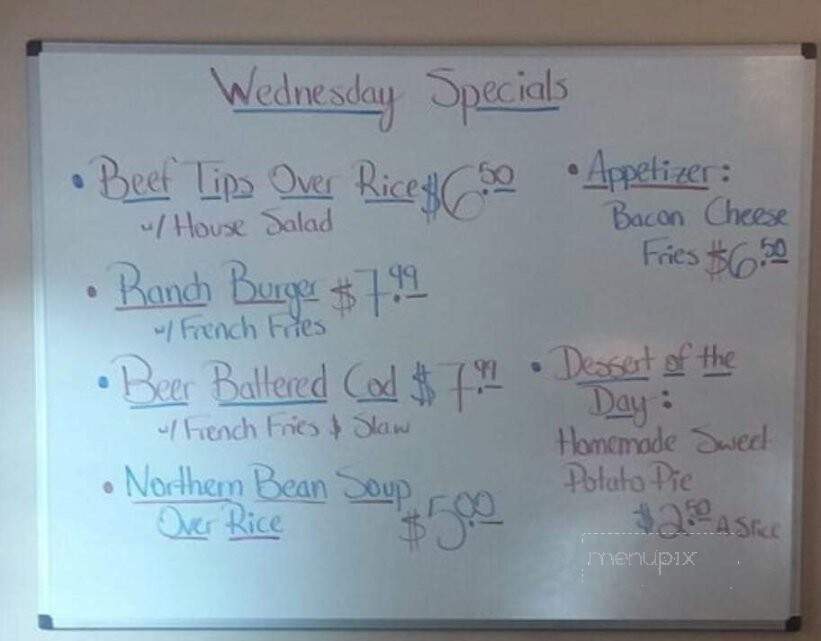 Wednesday Specials
• Beef Tips Over Rice $6.50
w/ House Salad
• Ranch Burger $7.99
w/ French Fries
• Beer Battered Cod $7.99
w/ French Fries & Slaw
• Northern Bean Soup
Over Rice $5.00
• Appetizer:
Bacon Cheese
Fries $6.50
• Dessert of the
Day:
Homemade Sweet
Potato Pie
$2.50 A Slice
menupix